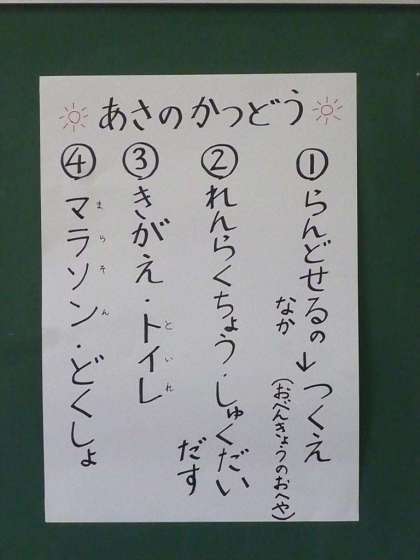 あさのかつどう
① らんどせるの なか → つくえ
(おべんきょうのおへや)
② れんらくちょう・しゅくだい
だす
③ きがえ・トイレ
といれ
④ マラソン・どくしょ
まらそん